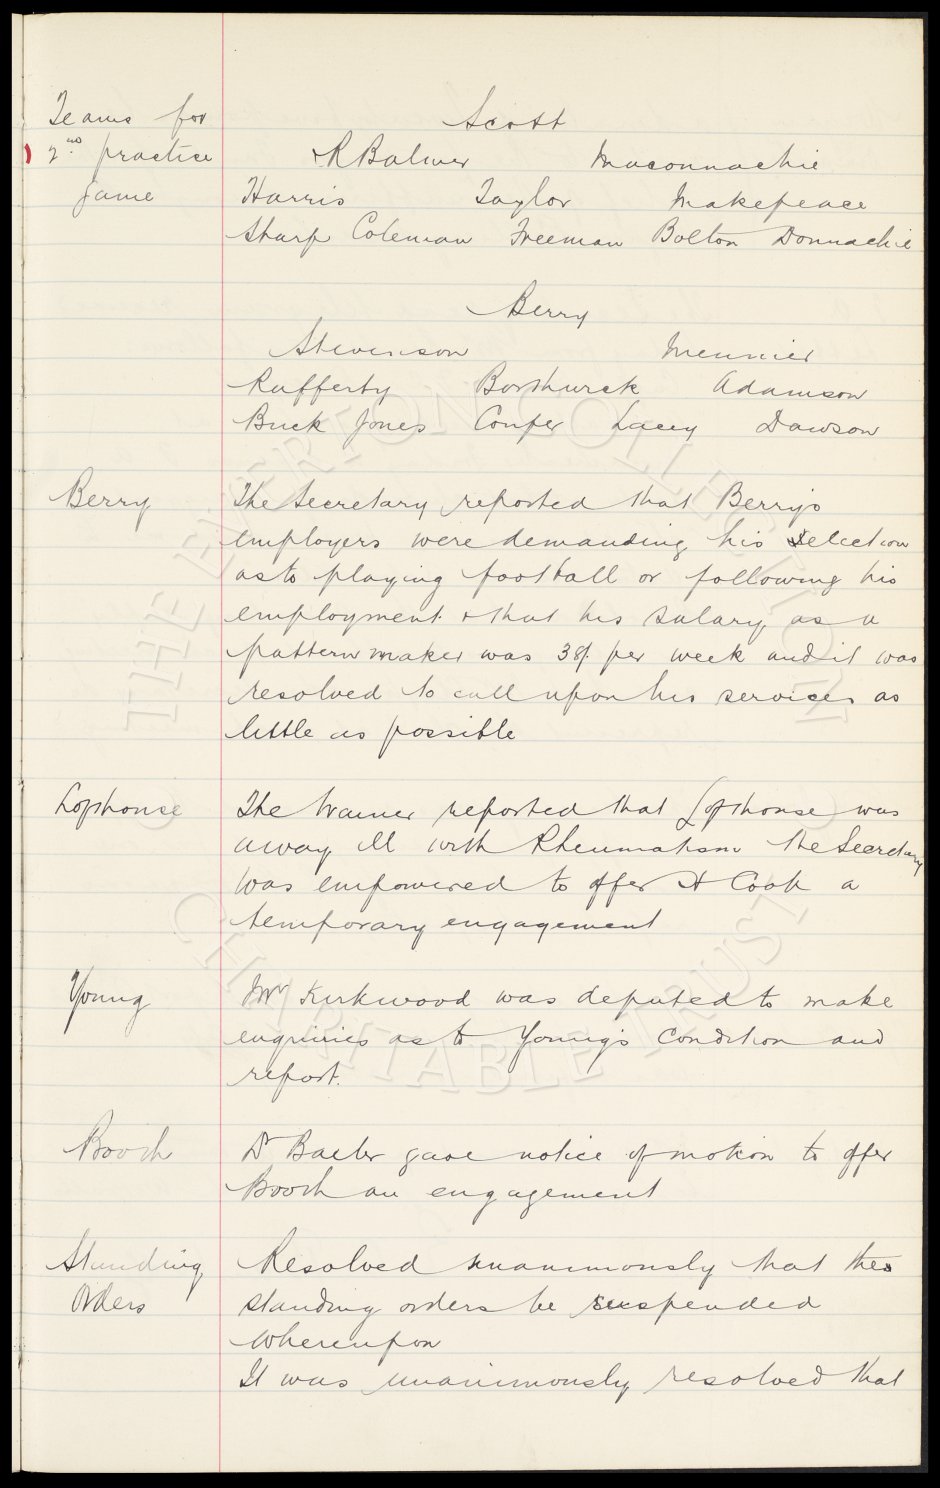 Teams for
2nd practice
game
Scott
R Balmer Maconnachie
Harris Taylor Makepeace
Sharp Coleman Freeman Bolton Donnachie
Berry
Stevenson Meunier
Rafferty Borthwick Adamson
Buck Jones Couper Lacey Dawson
Berry
The Secretary reported that Berry's
employers were demanding his selection
as to playing football or following his
employment & that his salary as a
pattern maker was 38/. per week and it was
resolved to call upon his services as
little as possible
Lofthouse
The trainer reported that Lofthouse was
away ill with Rheumatism the Secretary
was empowered to offer H Cook a
temporary engagement
Young
Mr Kirkwood was deputed to make
enquiries as to Young's condition and
report.
Booth
Dr Baxter gave notice of motion to offer
Booth an engagement
Standing
Orders
Resolved unanimously that the
standing orders be suspended
whereupon
It was unanimously resolved that
THE EVERTON COLLECTION
CHARITABLE TRUST